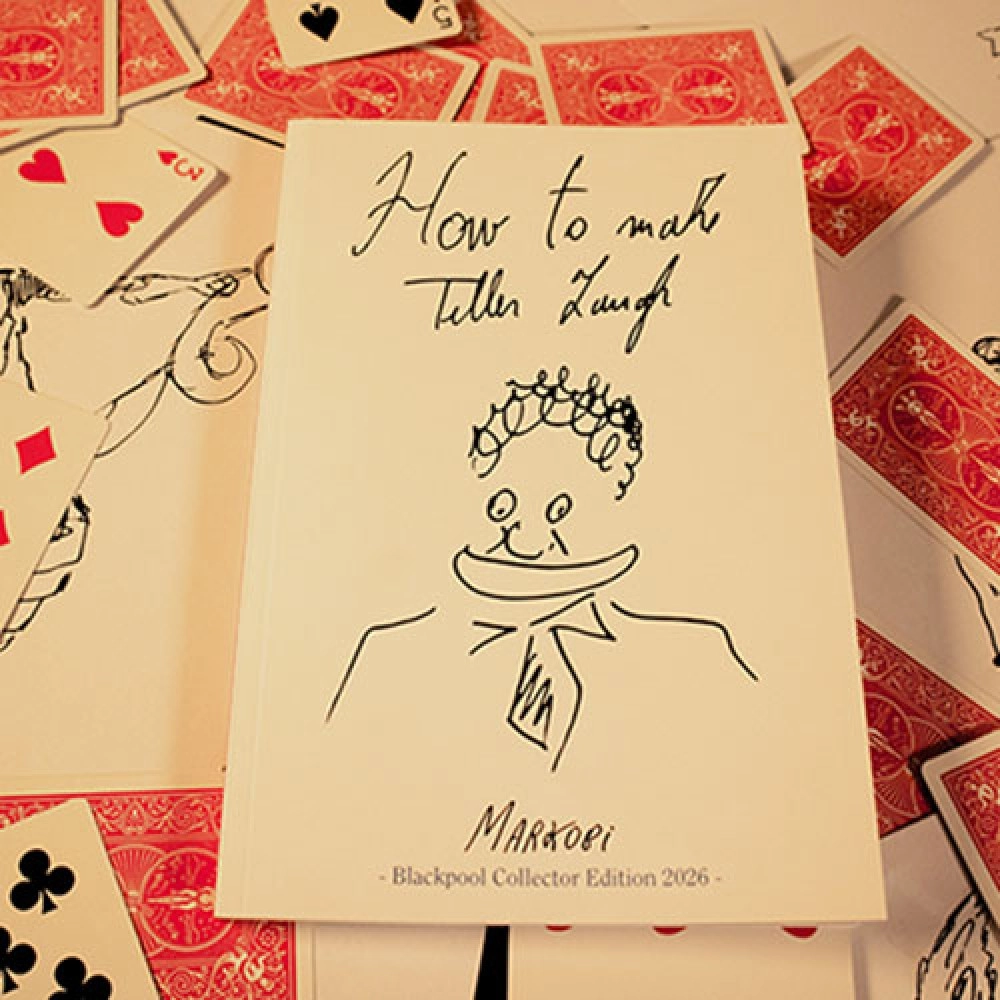 5
3
How to make
Teller Laugh
MARKOBI
- Blackpool Collector Edition 2026 -